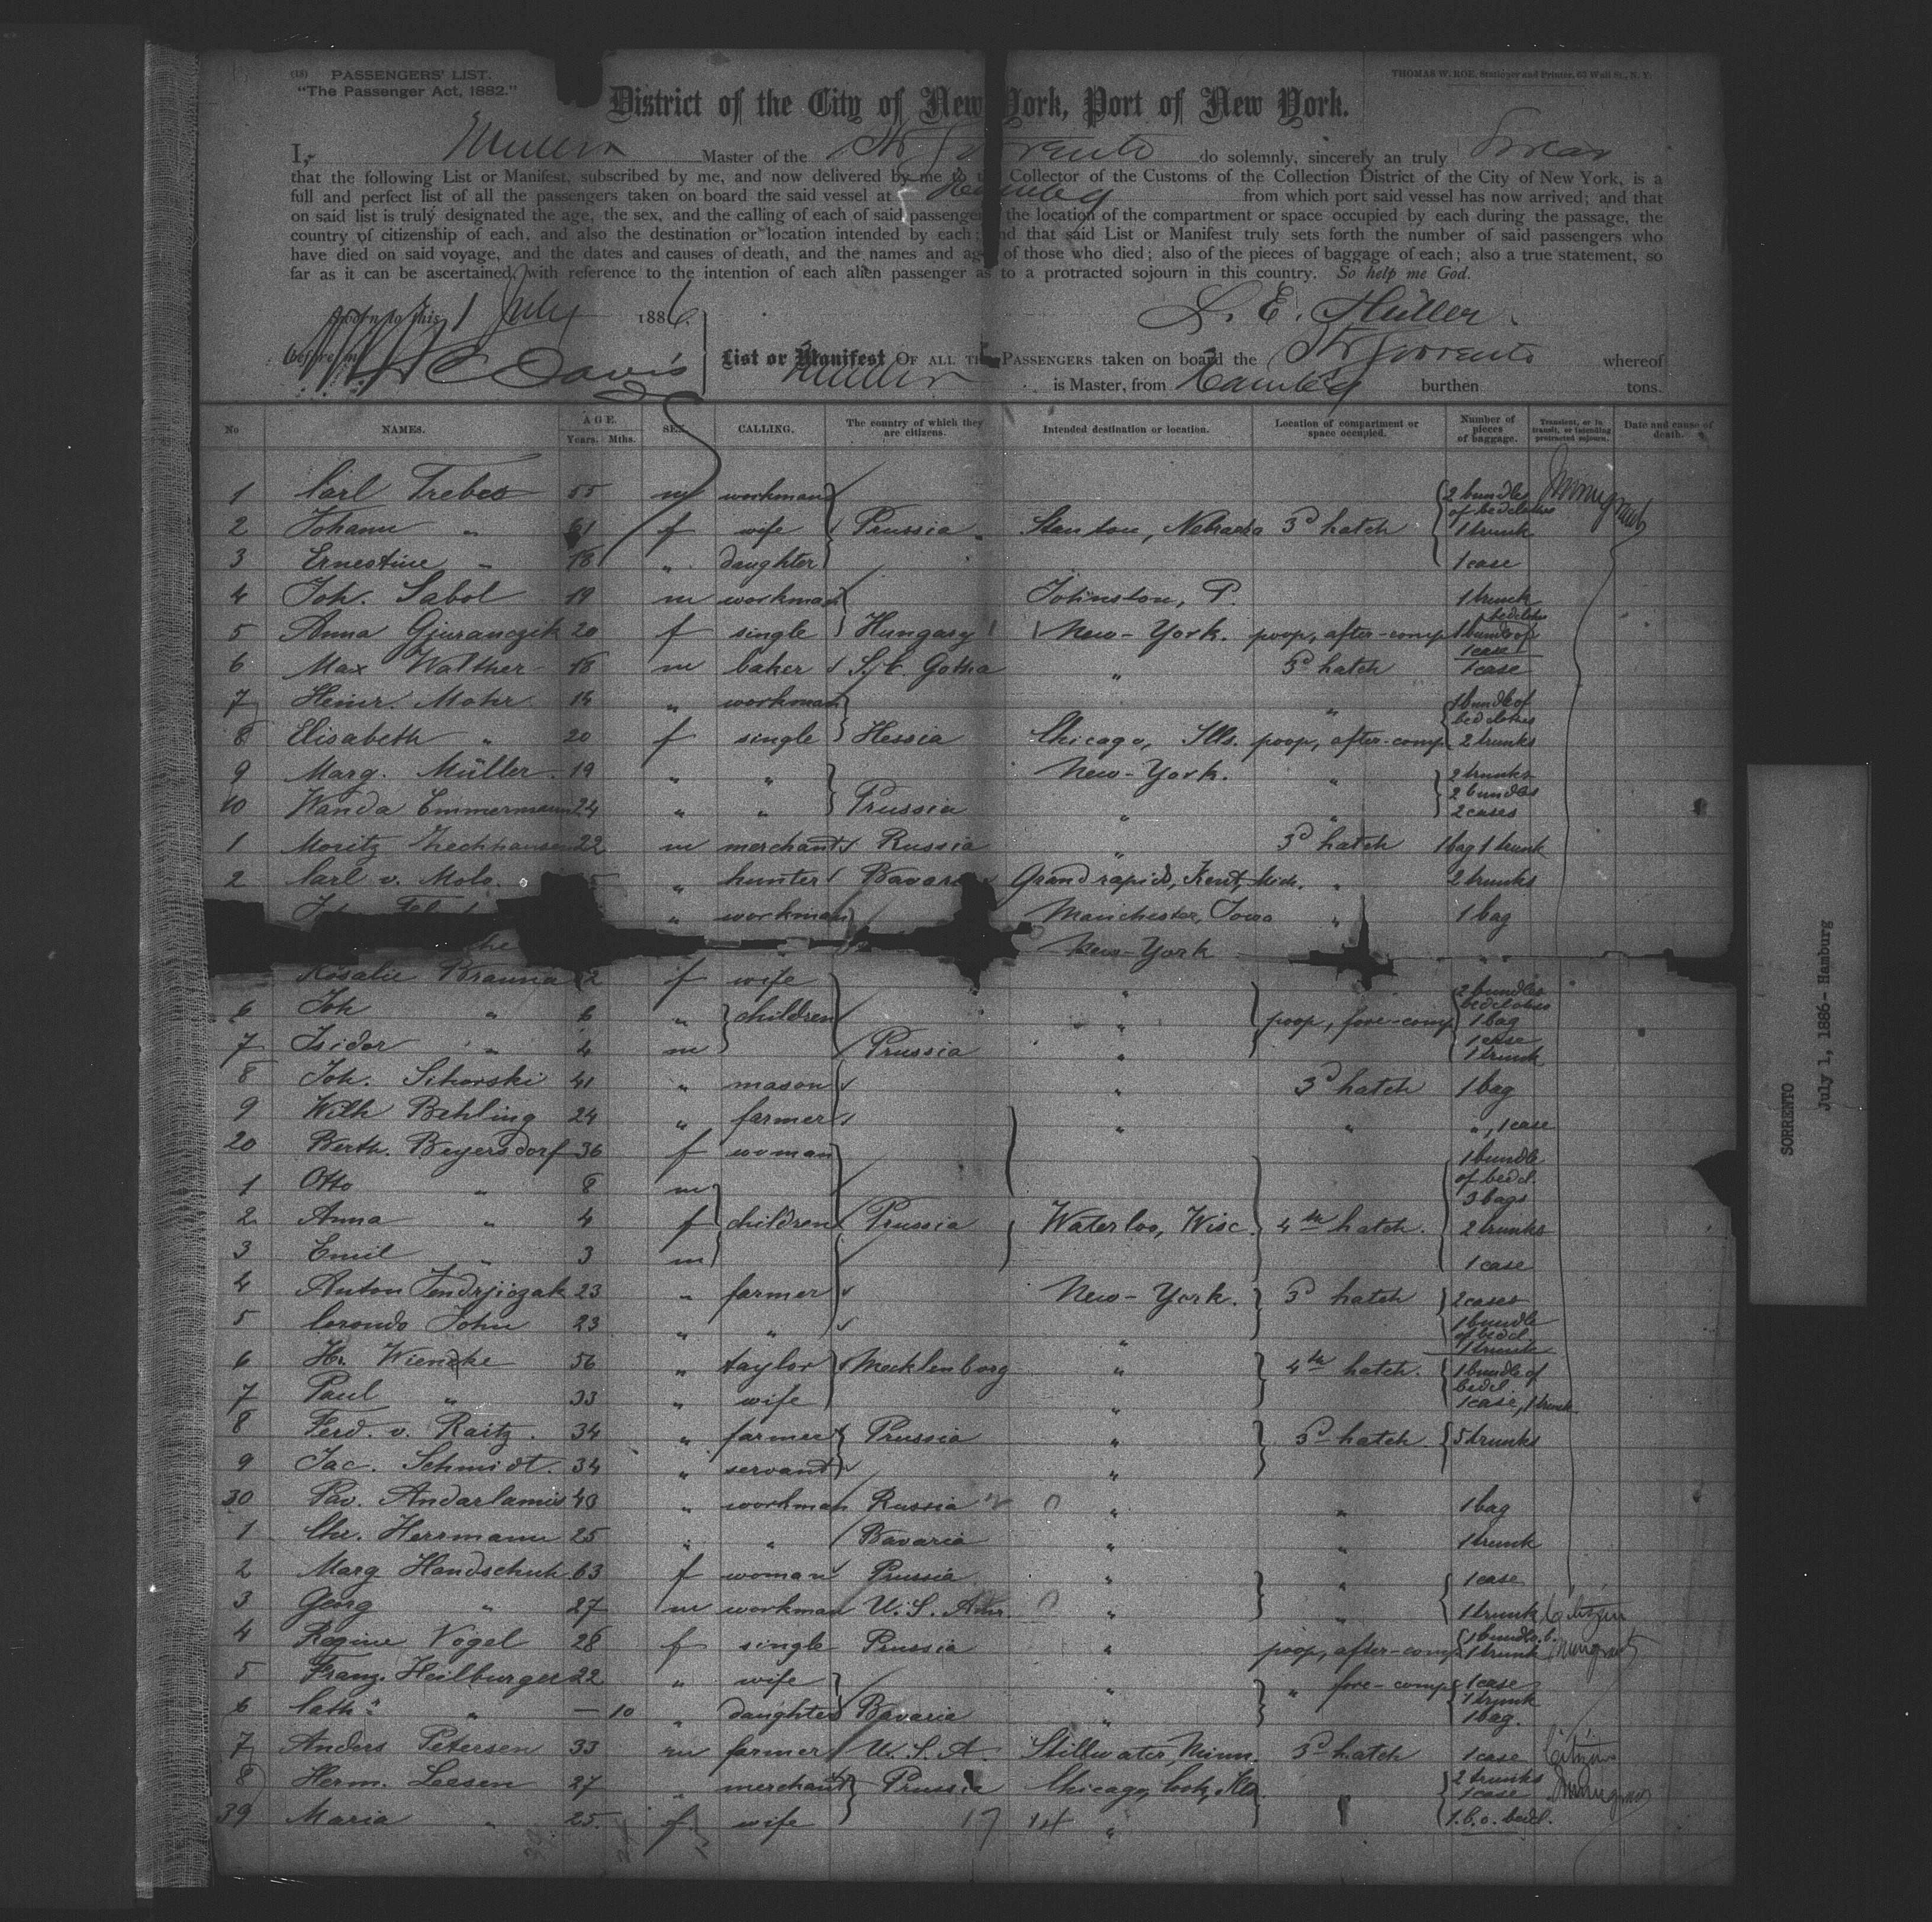 (18) PASSENGERS' LIST.
"The Passenger Act, 1882."
THOMAS W. ROE, Stationer and Printer, 63 Wall St., N. Y.
District of the City of New York, Port of New York.
I, Muller Master of the Str Sorrento do solemnly, sincerely an truly swear
that the following List or Manifest, subscribed by me, and now delivered by me to the Collector of the Customs of the Collection District of the City of New York, is a
full and perfect list of all the passengers taken on board the said vessel at Hamburg from which port said vessel has now arrived; and that
on said list is truly designated the age, the sex, and the calling of each of said passengers the location of the compartment or space occupied by each during the passage, the
country of citizenship of each, and also the destination or location intended by each; and that said List or Manifest truly sets forth the number of said passengers who
have died on said voyage, and the dates and causes of death, and the names and ages of those who died; also of the pieces of baggage of each; also a true statement, so
far as it can be ascertained, with reference to the intention of each alien passenger as to a protracted sojourn in this country. So help me God.
Sworn to this 1 July 1886. L. E. Müller.
before me Davis
List or Manifest OF ALL THE PASSENGERS taken on board the Str Sorrento whereof
Muller is Master, from Hamburg burthen tons.
No NAMES. AGE. Years. Mths. SEX. CALLING. The country of which they are citizens. Intended destination or location. Location of compartment or space occupied. Number of pieces of baggage. Transient, or in transit, or intending protracted sojourn. Date and cause of death.
1 Carl Trebes 55 m workman 2 bundles of bedclothes Immigrants
2 Johann " 61 f wife Prussia Stanton, Nebraska 3d hatch 1 trunk
3 Ernestine " 18 " daughter 1 case
4 Joh. Sabol 19 m workman Johnston, P. 1 trunk
5 Anna Gjuranczik 20 f single Hungary New-York. poop, after-comp 1 bundle of bedclothes 1 case
6 Max Walther 18 m baker S. C. Gotha " 3d hatch 1 case
7 Heinr. Mohr 14 " workman " 1 bundle of bedclothes
8 Elisabeth " 20 f single Hessia Chicago, Ills. poop, after-comp 2 trunks
9 Marg. Müller 19 " " New-York. " 2 trunks
10 Wanda Emmermann 24 " " Prussia " " 2 bundles 2 cases
1 Moritz 22 m merchant Russia " 3d hatch 1 bag 1 trunk
2 Carl v. Molo. " hunter Bavaria Grand rapids, Kent, Mich. " 2 trunks
" workman Manchester, Iowa " 1 bag
New-York " "
Rosalie Brauna f wife " 2 bundles bedclothes
6 Joh " 6 " children " poop, fore-comp 1 bag
7 Isidor " 4 m Prussia " 1 case 1 trunk
8 Joh. Sikorski 41 " mason " 3d hatch 1 bag
9 Wilh Behling 24 " farmer " " ", 1 case
20 Berth. Beyersdorf 36 f woman 1 bundle of bedcl.
1 Otto " 8 m 3 bags
2 Anna " 4 f children Prussia Waterloo, Wisc. 4th hatch. 2 trunks
3 Emil " 3 m 1 case
4 Anton 23 " farmer New-York. 3d hatch 2 cases
5 John 23 " " " 1 bundle of bedcl. 1 trunk
6 Hr. Wiencke 56 " taylor Mecklenborg " 4th hatch. 1 bundle of bedcl.
7 Paul " 33 " wife " 1 case, 1 trunk
8 Ferd. v. Raitz. 34 " farmer Prussia " 3d hatch. 5 trunks
9 Jac. Schmidt. 34 " servant "
30 Andarlamis 40 " workman Russia " " 1 bag
1 Chr. Herrmann 25 " " Bavaria " " 1 trunk
2 Marg Handschuh 63 f woman Prussia " " 1 case
3 Georg " 27 m workman U. S. Amr. " " 1 trunk Citizen
4 Regine Vogel 28 f single Prussia " poop, after-comp 1 bundle b. 1 trunk Immigrants
5 Franz. Heilburger 22 " wife " " fore-comp 1 case 1 trunk
6 Cath: " — 10 " daughter Bavaria " 1 bag.
7 Anders Petersen 33 m farmer U. S. A. Stillwater, Minn. 3d hatch 1 case Citizen
8 Herm. Leesen 27 " merchant Prussia Chicago, Cook, Ills. 2 trunks 1 case Immigrants
39 Maria " 25. f wife 17 14 " 1. b. o. bedcl.
SORRENTO
July 1, 1886- Hamburg